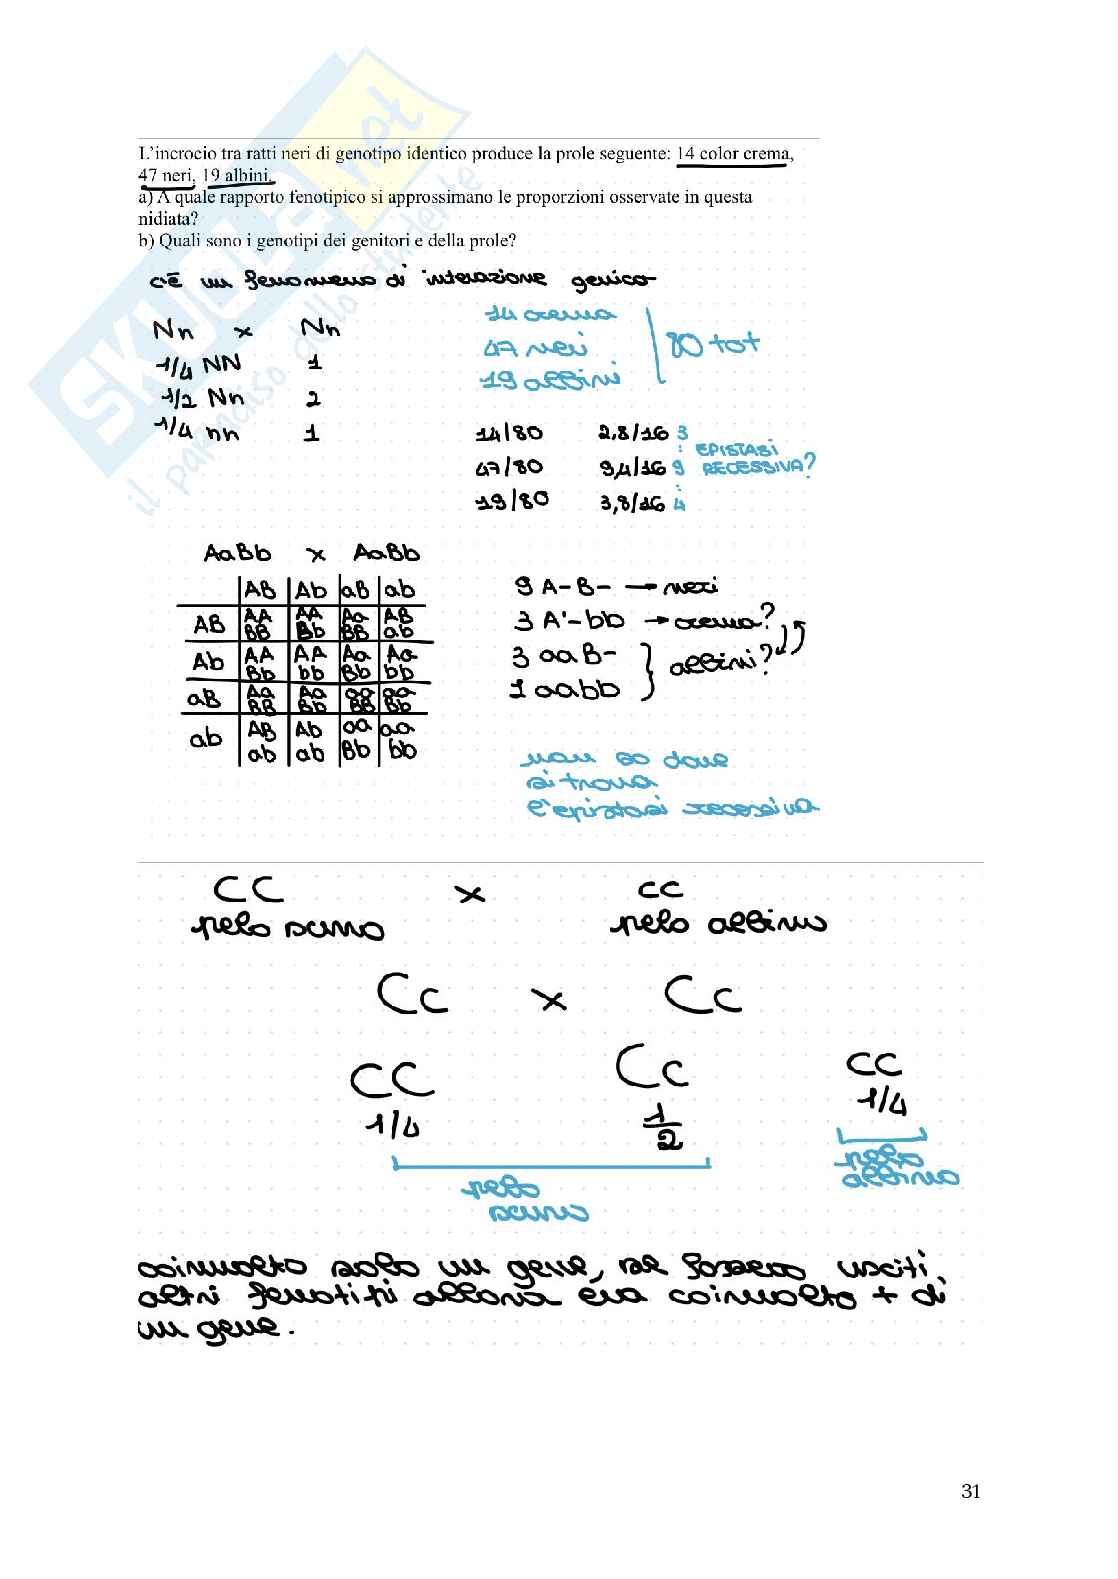 L'incrocio tra ratti neri di genotipo identico produce la prole seguente: 14 color crema,
47 neri, 19 albini.
a) A quale rapporto fenotipico si approssimano le proporzioni osservate in questa
nidiata?
b) Quali sono i genotipi dei genitori e della prole?
c'è un fenomeno di interazione genica
Nn x Nn
1/4 NN 1
1/2 Nn 2
1/4 nn 1
14 crema
47 neri
19 albini
80 tot
14/80 2,8/16 3
: EPISTASI
47/80 9,4/16 9 RECESSIVA?
:
19/80 3,8/16 4
AaBb x AaBb
AB Ab aB ab
AB AA BB AA Bb Aa BB AB ab
Ab AA Bb AA bb Aa Bb Aa bb
aB Aa BB Aa Bb aa BB aa Bb
ab AB ab Ab ab aa Bb aa bb
9 A-B- → neri
3 A-bb → crema?
3 aaB-
1 aabb
albini?
non so dove
si trova
l'epistasi recessiva
CC x cc
pelo scuro pelo albino
Cc x Cc
CC Cc cc
1/4 1/2 1/4
pelo scuro
pelo albino
coinvolto solo un gene, se fossero usciti
altri fenotipi allora era coinvolto + di
un gene.
31
SKUOLA.net
il paradiso dello studente